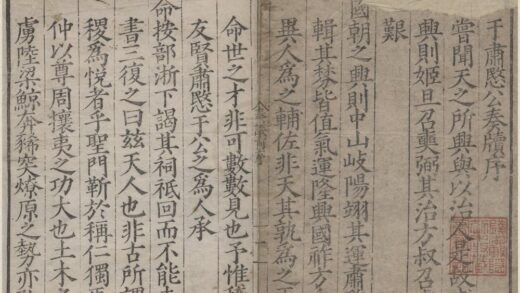 于肅愍公奏牘序
嘗聞天之所興與以治人是故
興則姬旦召奭弼其治方叔召
艱
國朝之興則中山岐陽翊其運肅
輯其楚皆值氣運隆興國祚方
異人為之輔佐非天其孰為之
命世之才非可數數見也予惟
友賢肅愍于公之為人承
命按部浙下謁其祠祇回而不能去
書三復之曰茲天人也非古所謂
稷為悅者乎聖門靳於稱仁獨
仲以尊周攘夷之功大也土木
虜陸梁鯨奔豨突燎原之勢亦